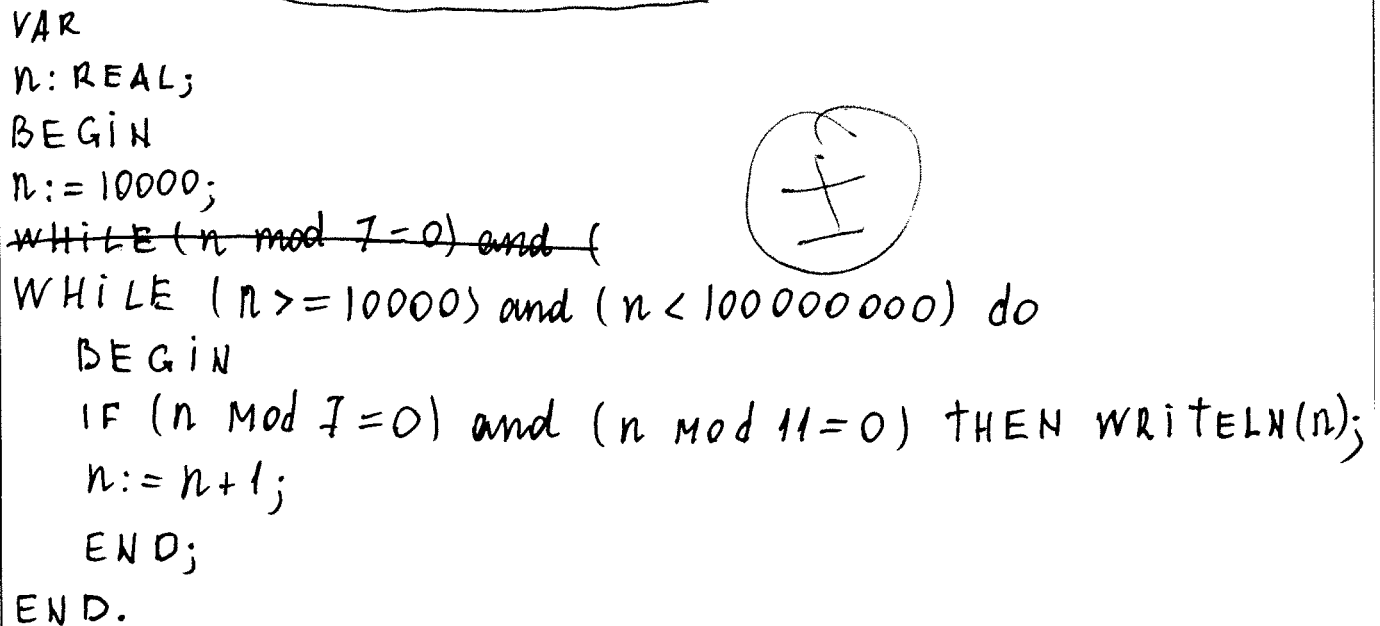 VAR
n: REAL;
BEGIN
n:= 10000;
WHILE (n mod 7=0) and (
WHILE (n>=10000) and (n<100000000) do
BEGIN
IF (n Mod 7=0) and (n Mod 11=0) THEN WRITELN(n);
n:= n+1;
END;
END.
±